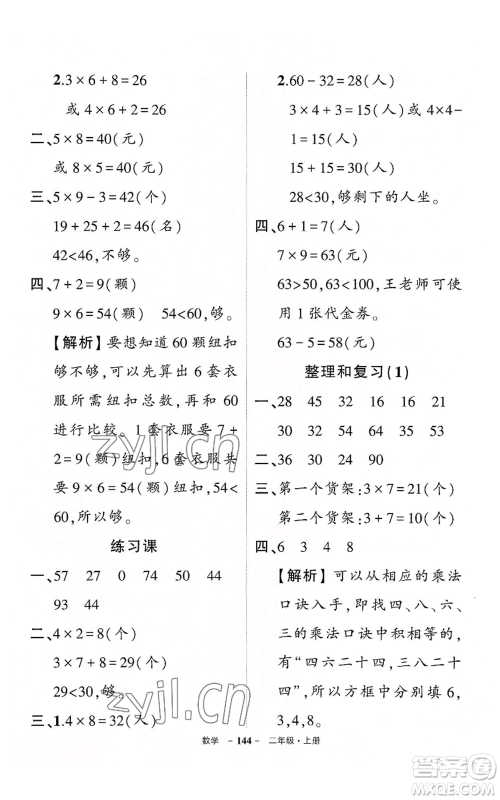 2.3×6+8=26
或 4×6+2=26
二、5×8=40(元)
或 8×5=40(元)
三、5×9-3=42(个)
19+25+2=46(名)
42<46,不够。
四、7+2=9(颗)
9×6=54(颗) 54<60,够。
【解析】要想知道 60 颗纽扣
够不够,可以先算出 6 套衣
服所需纽扣总数,再和 60
进行比较。1 套衣服要 7+
2=9(颗)纽扣,6 套衣服共
要 9×6=54(颗)纽扣,54<
60,所以够。
练习课
一、57 27 0 74 50 44
93 44
二、4×2=8(个)
3×7+8=29(个)
29<30,够。
三、1.4×8=32(人)
2.60-32=28(人)
3×4+3=15(人)或4×4-
1=15(人)
15+15=30(人)
28<30,够剩下的人坐。
四、6+1=7(人)
7×9=63(元)
63>50,63<100,王老师可以
使用 1 张代金券。
63-5=58(元)
整理和复习(1)
一、28 45 32 16 21
30 32 54 64 35 53
二、36 30 24 90
三、第一个货架:3×7=21(个)
第二个货架:3+7=10(个)
四、6 3 4 8
【解析】可以从相应的乘法
口诀入手,从四、八、六、
三的乘法口诀中积相等的,
有“四六二十四,三八二十
四”,所以方框中分别填 6,
3,4,8。
zyjl.cn
zyjl.cn
数学 －144－ 二年级·上册
答案圈
MXQE.COM